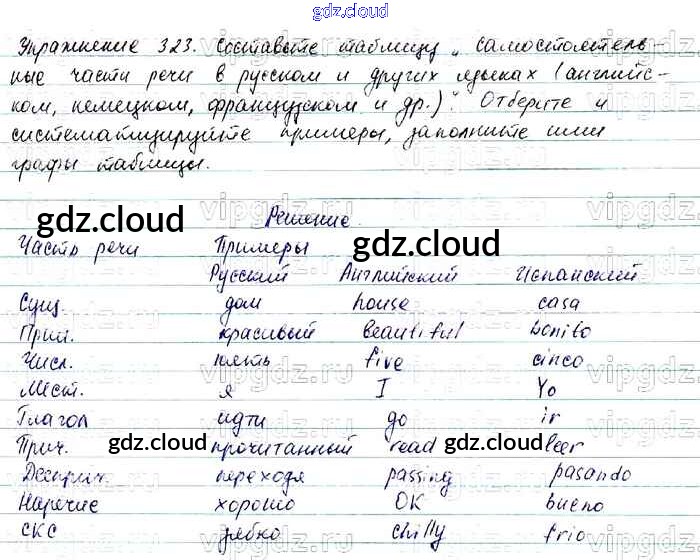 gdz.cloud
Упражнение 323. Составьте таблицу „Самостоятель-
ные части речи в русском и других языках (английс-
ком, немецком, французском и др.)". Отберите и
систематизируйте примеры, заполните ими
графы таблицы.
Решение.
gdz.cloud gdz.cloud
Часть речи Примеры
Русский Английский Испанский
Сущ. дом house casa
Прил. красивый beautiful bonito
Числ. пять five cinco
Мест. я I Yo
Глагол идти go ir
Прич. gdz.cloud прочитанный read gdz.cloud leer
Дееприч. переходя passing pasando
Наречие хорошо OK bueno
СКС зябко chilly frio